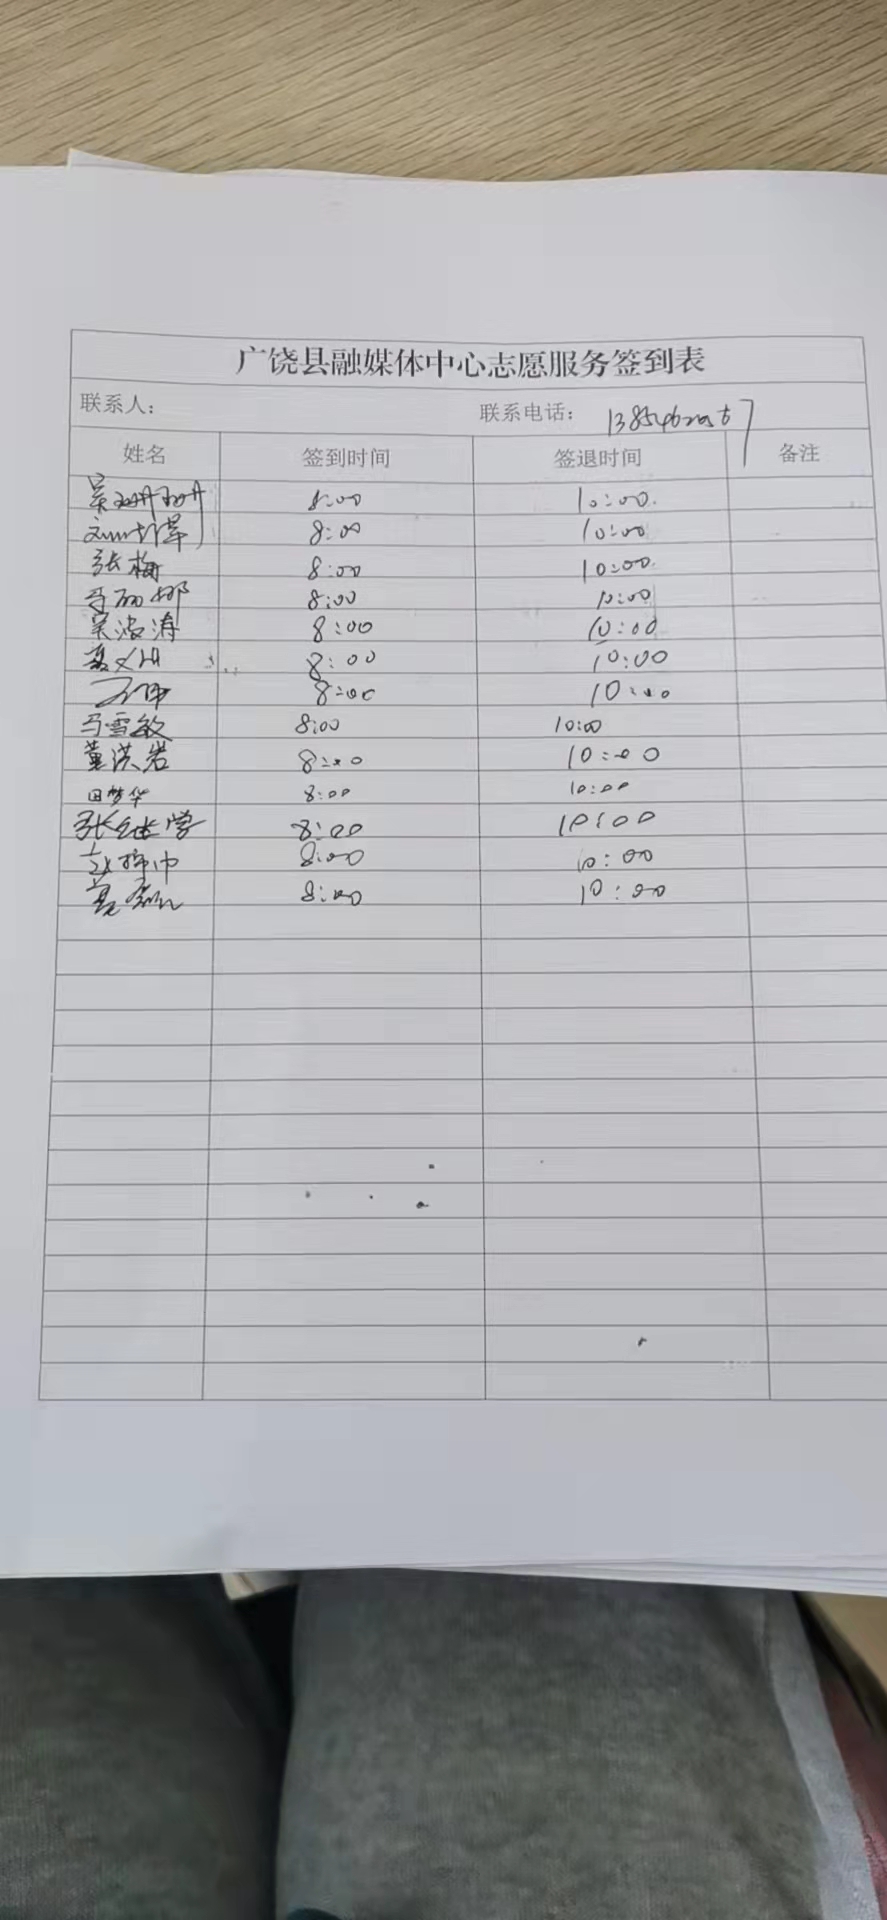 广饶县融媒体中心志愿服务签到表
联系人： 联系电话：
姓名 签到时间 签退时间 备注
吴珊珊 8:00 10:00
8:00 10:00
张梅 8:00 10:00
马丽娜 8:00 10:00
吴海涛 8:00 10:00
8:00 10:00
8:00 10:00
马雪敏 8:00 10:00
董洪岩 8:00 10:00
田梦华 8:00 10:00
张继学 8:00 10:00
8:00 10:00
8:00 10:00